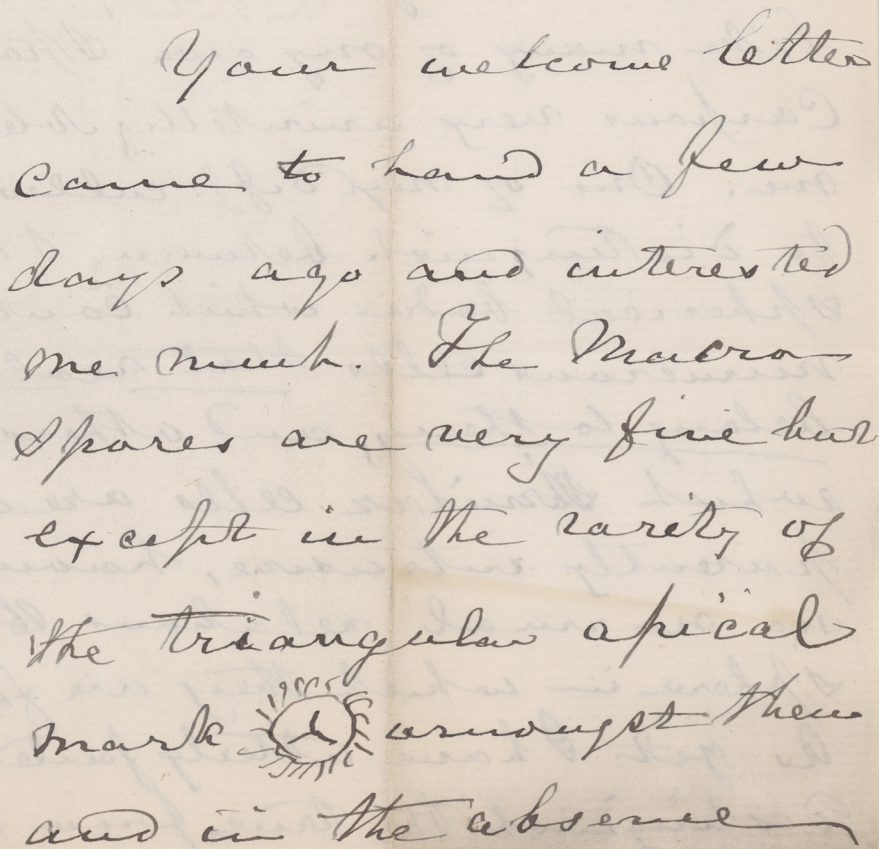 Your welcome letter
came to hand a few
days ago and interested
me much. The Macro
spores are very fine but
except in the rarity of
the triangular apical
mark amongst them
and in the absence